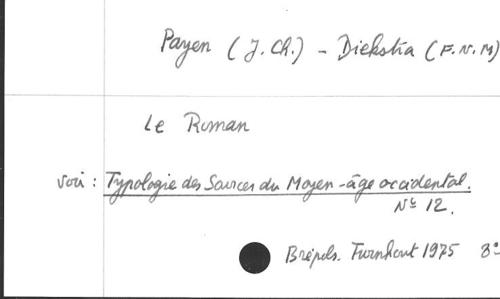 Payen (J. Ch.) - Diekstra (F. N. M)
Le Roman
Voir : Typologie des Sources du Moyen-âge occidental.
Nº 12.
Brépols. Turnhout 1975 8º